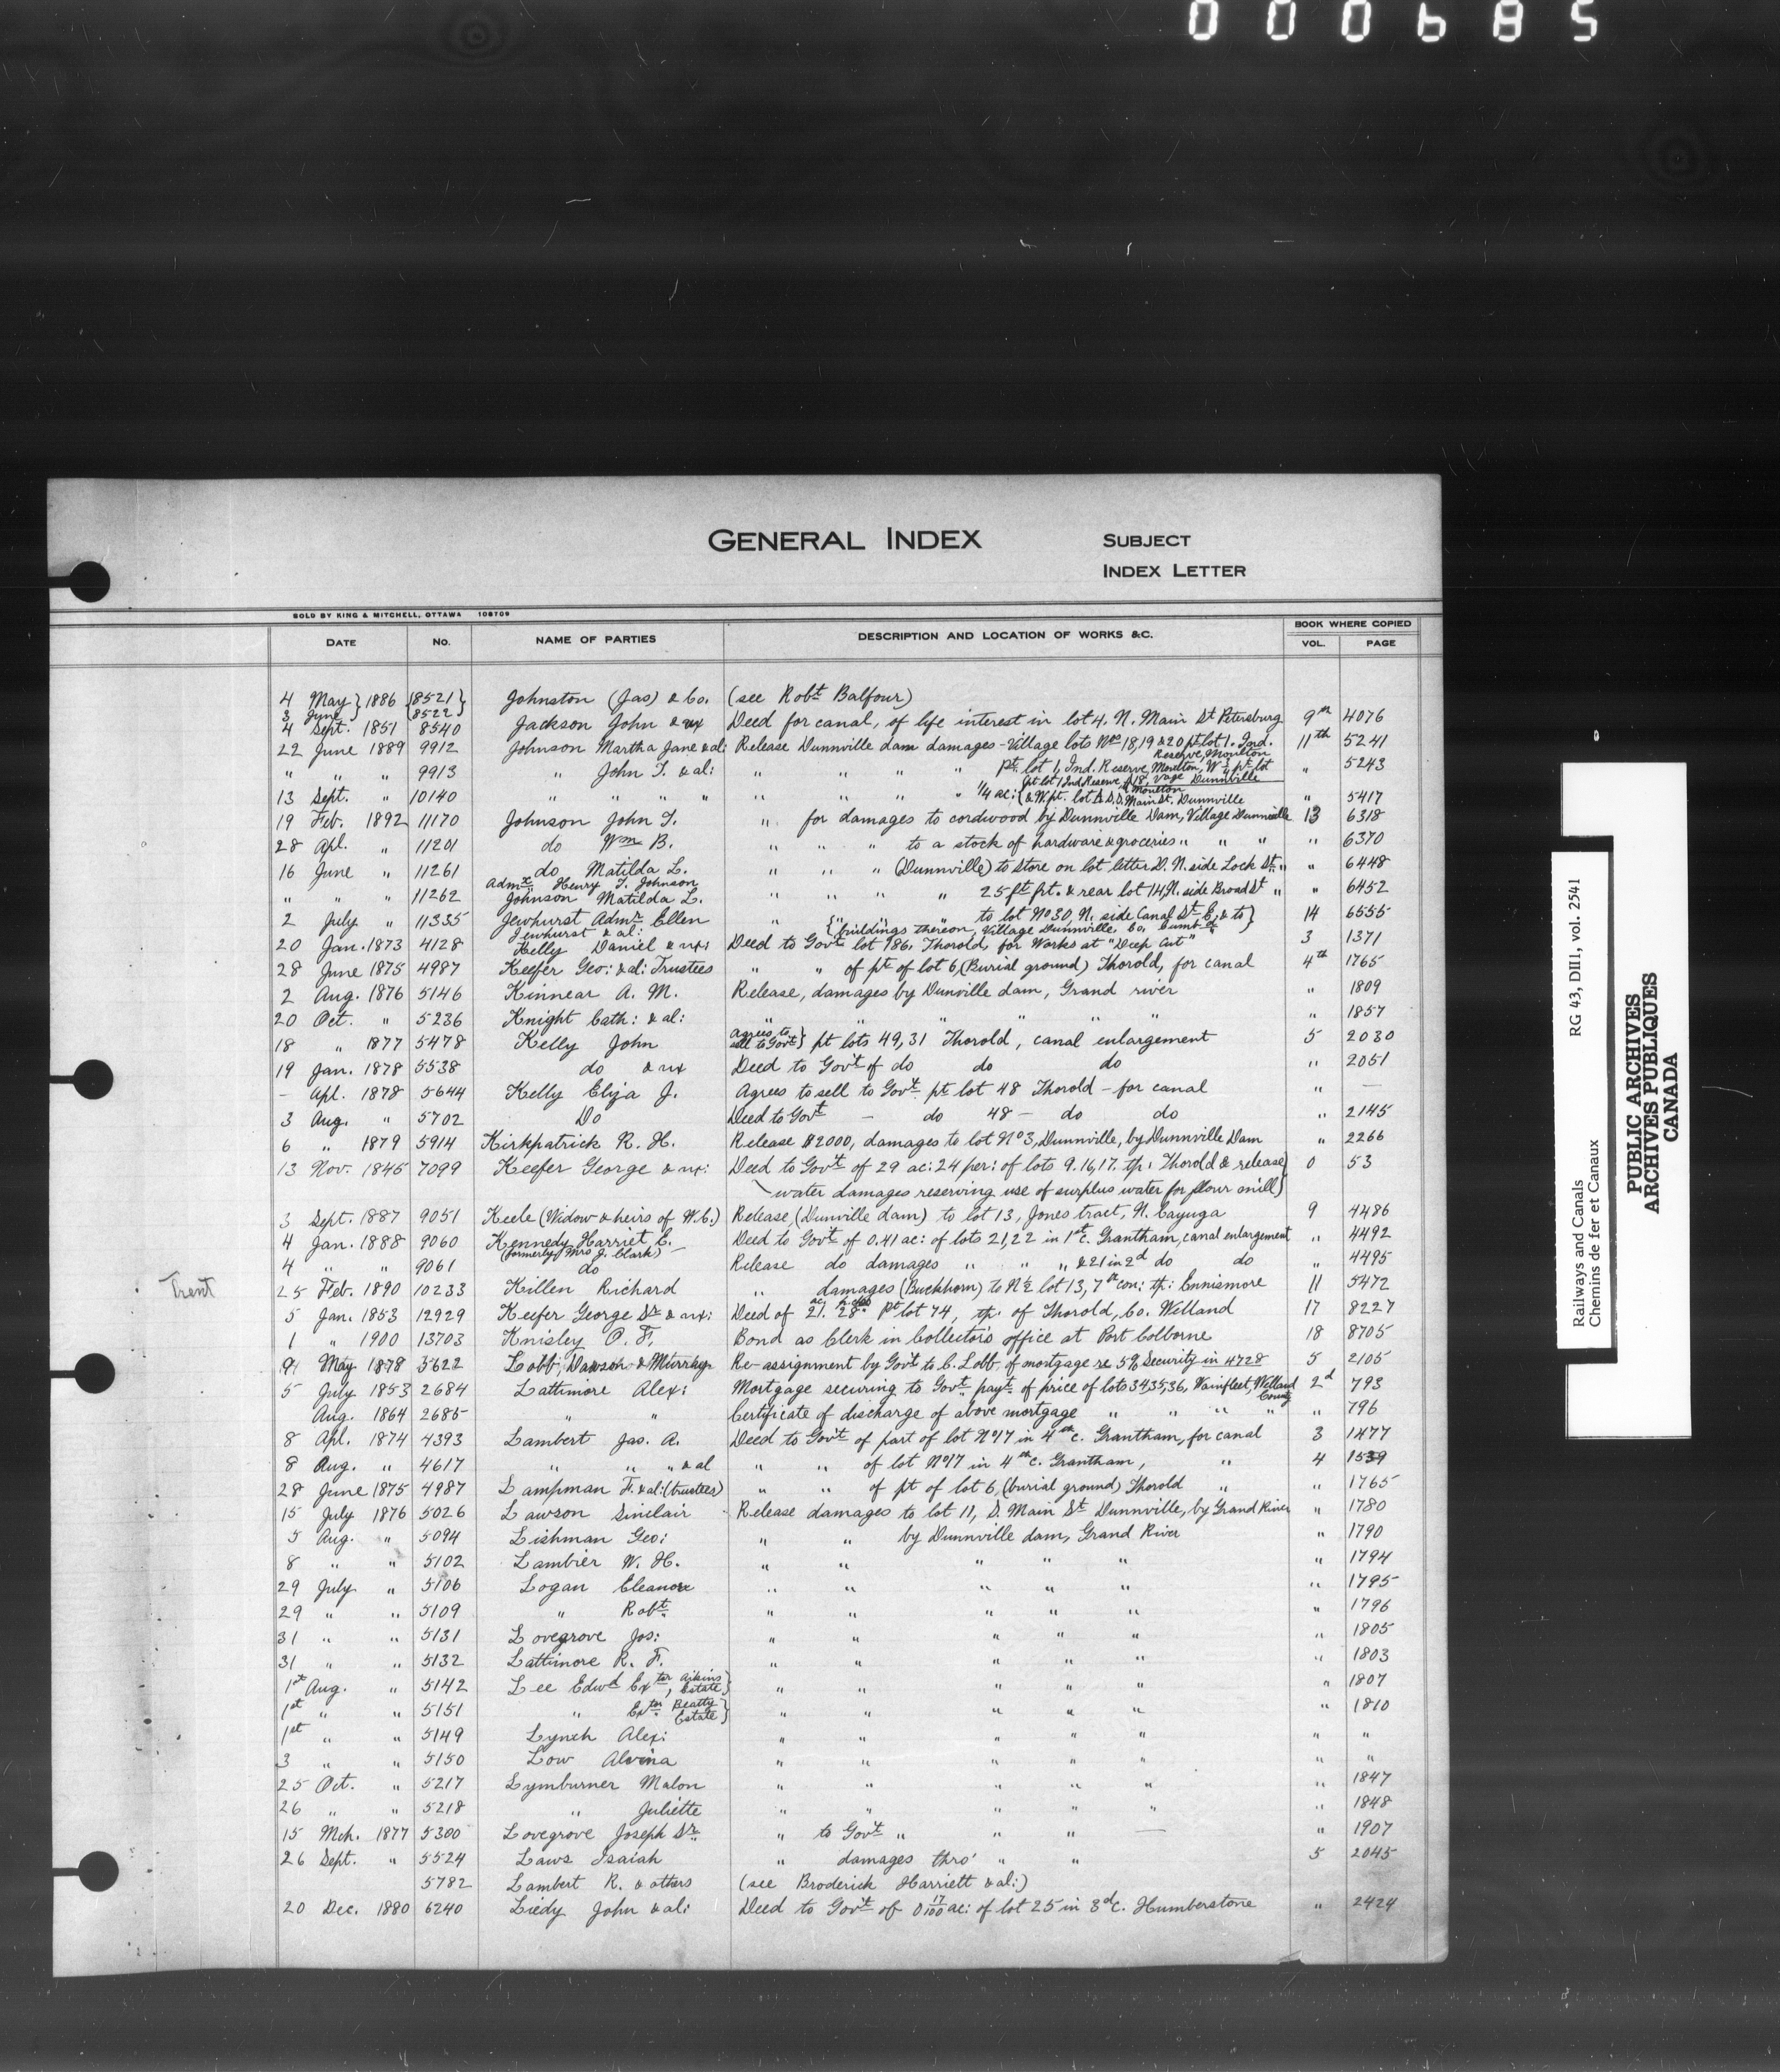 000685
GENERAL INDEX
SUBJECT
INDEX LETTER
SOLD BY KING & MITCHELL, OTTAWA 108709
DATE No. NAME OF PARTIES DESCRIPTION AND LOCATION OF WORKS &C. BOOK WHERE COPIED
VOL. PAGE
4 May } 1886 {8521} Johnston (Jas) & Co. (see Robt Balfour)
3 June {8522}
4 Sept. 1851 8540 Jackson John & ux Deed for canal, of life interest in lot 4. N. Main St Petersburg 9th 4076
22 June 1889 9912 Johnson Martha Jane & al: Release Dunnville dam damages - Village lots Nos 18,19 & 20 pt lot 1. Ind. Reserve, Moulton 11th 5241
" " " 9913 " John T. & al: " " " " pt. lot 1, Ind. Reserve, Moulton, W ½ pt. lot 18, Vage Dunnville " 5243
13 Sept. " 10140 " " " " " " " " ¼ ac: { pt lot 1 Ind Reserve, Moulton & W. pt. lot S. Main St. Dunnville " 5417
19 Feb. 1892 11170 Johnson John T. " for damages to cordwood by Dunnville Dam, Village Dunnville 13 6318
28 Apl. " 11201 do Wm B. " " " to a stock of hardware & groceries " " " " 6370
16 June " 11261 do Matilda L. " " " (Dunnville) to store on lot letter D. N. side Lock St. " " 6448
Admx Henry T. Johnson
" " " 11262 Johnson Matilda L. " " " " 25 ft frt. & rear lot 14, N. side Broad St " " 6452
2 July " 11335 Jewhurst Admr. Ellen " " " " to lot No 30, N. side Canal St E; & to } 14 6555
Jewhurst & al: { buildings thereon, Village Dunnville, Co.
20 Jan. 1873 4128 Kelly Daniel & ux: Deed to Govt lot 186, Thorold, for Works at "Deep Cut" 3 1371
28 June 1875 4987 Keefer Geo: & al: Trustees " " of pt of lot 6, (Burial ground) Thorold, for canal 4th 1765
2 Aug. 1876 5146 Kinnear A. M. Release, damages by Dunville dam, Grand river " 1809
20 Oct. " 5236 Knight Cath: & al: " " " " " " " 1857
18 " 1877 5478 Kelly John agrees to sell to Govt } pt lots 49, 31 Thorold, canal enlargement 5 2030
19 Jan. 1878 5538 do & ux Deed to Gov't of do do do " 2051
- Apl. 1878 5644 Kelly Eliza J. Agrees to sell to Govt. pt. lot 48 Thorold - for canal " —
3 Aug. " 5702 Do Deed to Govt - do 48 - do do " 2145
6 " 1879 5914 Kirkpatrick R. H. Release $2000, damages to lot No 3, Dunnville, by Dunnville Dam " 2266
13 Nov. 1845 7099 Keefer George & ux: Deed to Gov't of 29 ac: 24 per: of lots 9. 16, 17. tp: Thorold & release } 0 53
water damages reserving use of surplus water for flour mill }
3 Sept. 1887 9051 Keele (Widow & heirs of W.C.) Release, (Dunville dam) to lot 13, Jones tract, N. Cayuga 9 4486
4 Jan. 1888 9060 Kennedy Harriet C. Deed to Gov't of 0.41 ac: of lots 21, 22 in 1st c. Grantham, canal enlargement " 4492
(formerly Mrs J. Clark) -
4 " " 9061 do Release do damages " " " & 21 in 2d do do " 4495
Trent 25 Feb. 1890 10233 Killen Richard " damages (Buckhorn) to N ½ lot 13, 7th con: tp: Ennismore 11 5472
5 Jan. 1853 12929 Keefer George Sr & ux: Deed of 21. 28. pt lot 74, tp. of Thorold, Co. Welland 17 8227
1 " 1900 13703 Knisley O. F. Bond as Clerk in Collector's office at Port Colborne 18 8705
9 May 1878 5622 Lobb, Dawson & Murray Re-assignment by Gov't to C. Lobb, of mortgage re 5% Security in 4728 5 2105
5 July 1853 2684 Lattimore Alex: Mortgage securing to Govt. payt. of price of lots 34,35,36, Wainfleet, Welland County 2d 793
Aug. 1864 2685 " " Certificate of discharge of above mortgage " " " " " 796
8 Apl. 1874 4393 Lambert Jas. A. Deed to Gov't of part of lot No 17 in 4th c. Grantham, for canal 3 1477
8 Aug. " 4617 " " " & al " " of lot No 17 in 4th c. Grantham, " 4 1539
28 June 1875 4987 Lampman F. & al: (trustees) " " of pt of lot 6, (burial ground) Thorold " " 1765
15 July 1876 5026 Lawson Sinclair Release damages to lot 11, S. Main St Dunnville, by Grand River " 1780
5 Aug. " 5094 Lishman Geo: " " by Dunnville dam, Grand River " 1790
8 " " 5102 Lambier W. H. " " " " " " 1794
29 July " 5106 Logan Eleanore " " " " " " 1795
29 " " 5109 " Robt. " " " " " " 1796
31 " " 5131 Lovegrove Jos: " " " " " " 1805
31 " " 5132 Lattimore R. F. " " " " " " 1803
1st Aug. " 5142 Lee Edwd Extor, Aikins Estate } " " " " " " 1807
1st " " 5151 " Extor Beatty Estate } " " " " " " 1810
1st " " 5149 Lynch Alex: " " " " " " "
3 " " 5150 Low Alvina " " " " " " "
25 Oct. " 5217 Lymburner Malon " " " " " " 1847
26 " " 5218 " Juliette " " " " " " 1848
15 Mch. 1877 5300 Lovegrove Joseph Sr. " to Gov't " " " — " 1907
26 Sept. " 5524 Laws Isaiah " damages thro' " " 5 2045
5782 Lambert R. & others (see Broderick Harriett & al:)
20 Dec. 1880 6240 Liedy John & al: Deed to Gov't of 0 17/100 ac: of lot 25 in 3d c. Humberstone " 2424
Railways and Canals RG 43, DIII, vol. 2541
Chemins de fer et Canaux
PUBLIC ARCHIVES
ARCHIVES PUBLIQUES
CANADA